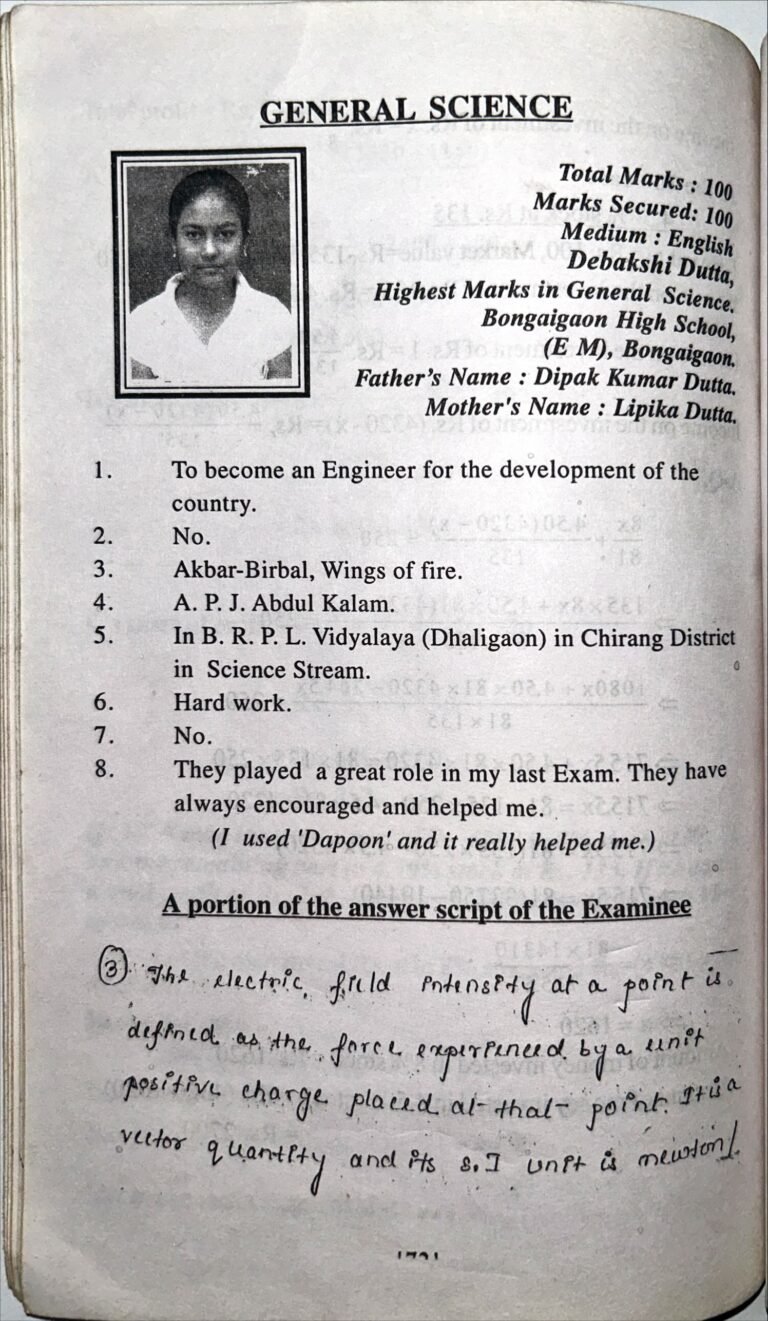 GENERAL SCIENCE
Total Marks : 100
Marks Secured: 100
Medium : English
Debakshi Dutta,
Highest Marks in General Science.
Bongaigaon High School,
(E M), Bongaigaon.
Father's Name : Dipak Kumar Dutta.
Mother's Name : Lipika Dutta.
1. To become an Engineer for the development of the
country.
2. No.
3. Akbar-Birbal, Wings of fire.
4. A. P. J. Abdul Kalam.
5. In B. R. P. L. Vidyalaya (Dhaligaon) in Chirang District
in Science Stream.
6. Hard work.
7. No.
8. They played a great role in my last Exam. They have
always encouraged and helped me.
(I used 'Dapoon' and it really helped me.)
A portion of the answer script of the Examinee
3 The electric field intensity at a point is
defined as the force experienced by a unit
positive charge placed at that point. It is a
vector quantity and its S.I unit is newton/